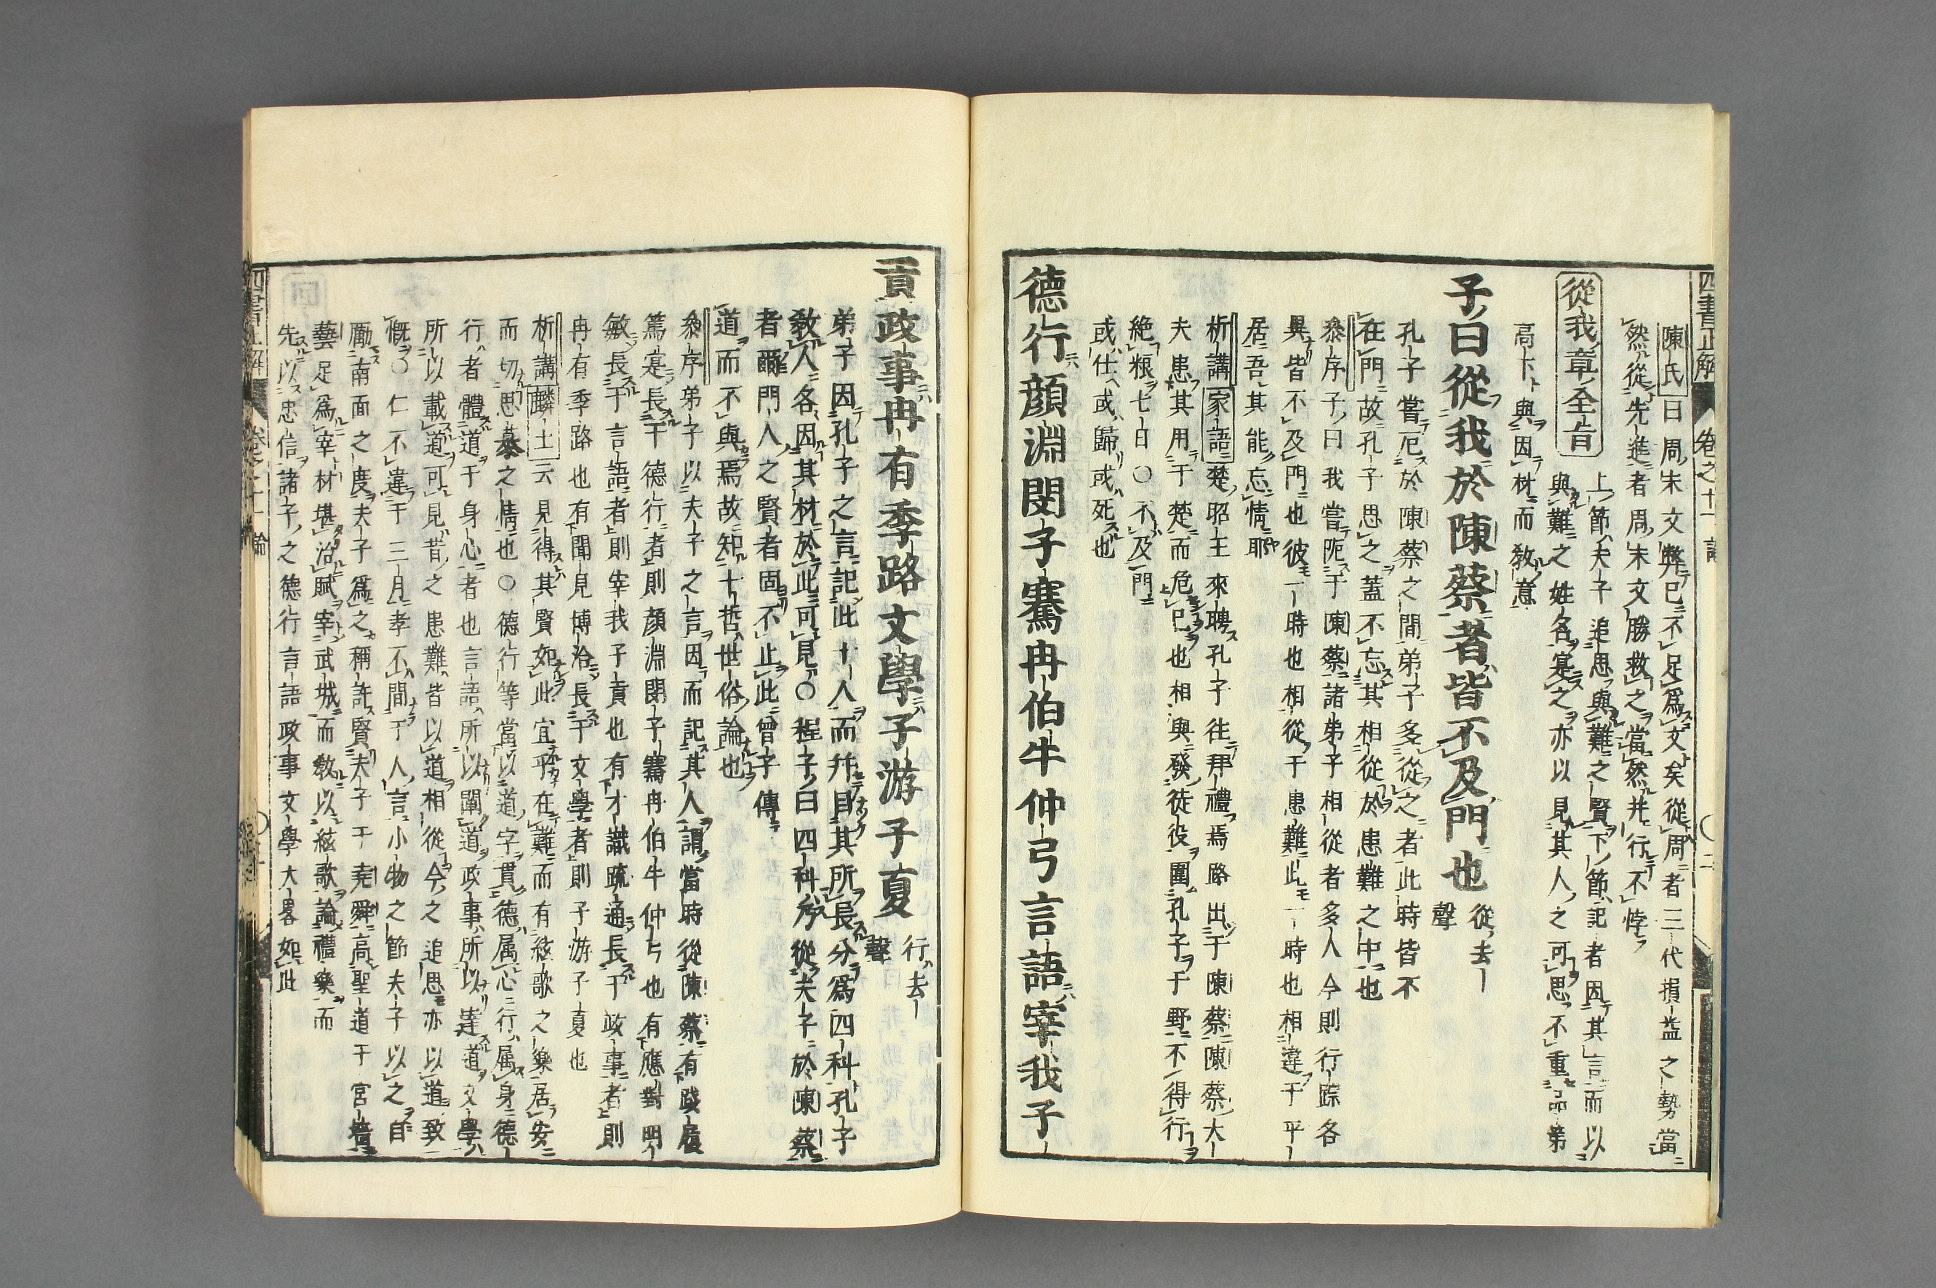 四書正解 卷之十一 論 二
陳氏曰周末文弊已不足爲文矣從周者三代損益之勢當
然從先進者周末文勝救之當然並行不悖
從我章全旨
上節夫子追思與難之賢下節記者因其言而以
與難之姓名寔之亦以見其人之可思不重品第
高下與因材而教意
子曰從我於陳蔡者皆不及門也 從去聲
孔子嘗厄於陳蔡之間弟子多從之者此時皆不
在門故孔子思之蓋不忘其相從於患難之中也
叅序子曰我嘗阨于陳蔡諸弟子相從者多人今則行踪各
異皆不及門也彼一時也相從于患難此一時也相違于平
居吾其能忘情耶
析講家語楚昭王來聘孔子往拜禮焉路出于陳蔡陳蔡大
夫患其用于楚而危己也相與發徒役圍孔子于野不得行
絶粮七日○不及門
或仕或歸或死也
德行顔淵閔子騫冉伯牛仲弓言語宰我子
貢政事冉有季路文學子游子夏 行去聲
弟子因孔子之言記此十人而幷目其所長分爲四科孔子
敎人各因其材於此可見○程子曰四科乃從夫子於陳蔡
者爾門人之賢者固不止此曾子傳
道而不與焉故知十哲世俗論也
叅序弟子以夫子之言因而記其人謂當時從陳蔡有踐履
篤寔長于德行者則顔淵閔子騫冉伯牛仲弓也有應對明
敏長于言語者則宰我子貢也有才識疏通長于政事者則
冉有季路也有聞見博洽長于文學者則子游子夏也
析講麟士云見得其賢如此宜乎在難而有絃歌之樂居安
而切思慕之情也○德行等當以道字貫德属心行属身德
行者體道于身心者也言語所以闡道政事所以達道文學
所以載道可見昔之患難皆以道相從今之追思亦以道致
慨○仁不違于三月孝不間于人言小物之節夫子以之自
勵南面之度夫子爲之稱許賢夫子于堯舜高聖道于宮墻
藝足爲宰材堪治賦宰武城而敎以絃歌論禮樂而
先以忠信諸子之德行言語政事文學大畧如此
四書正解 卷之十一 論